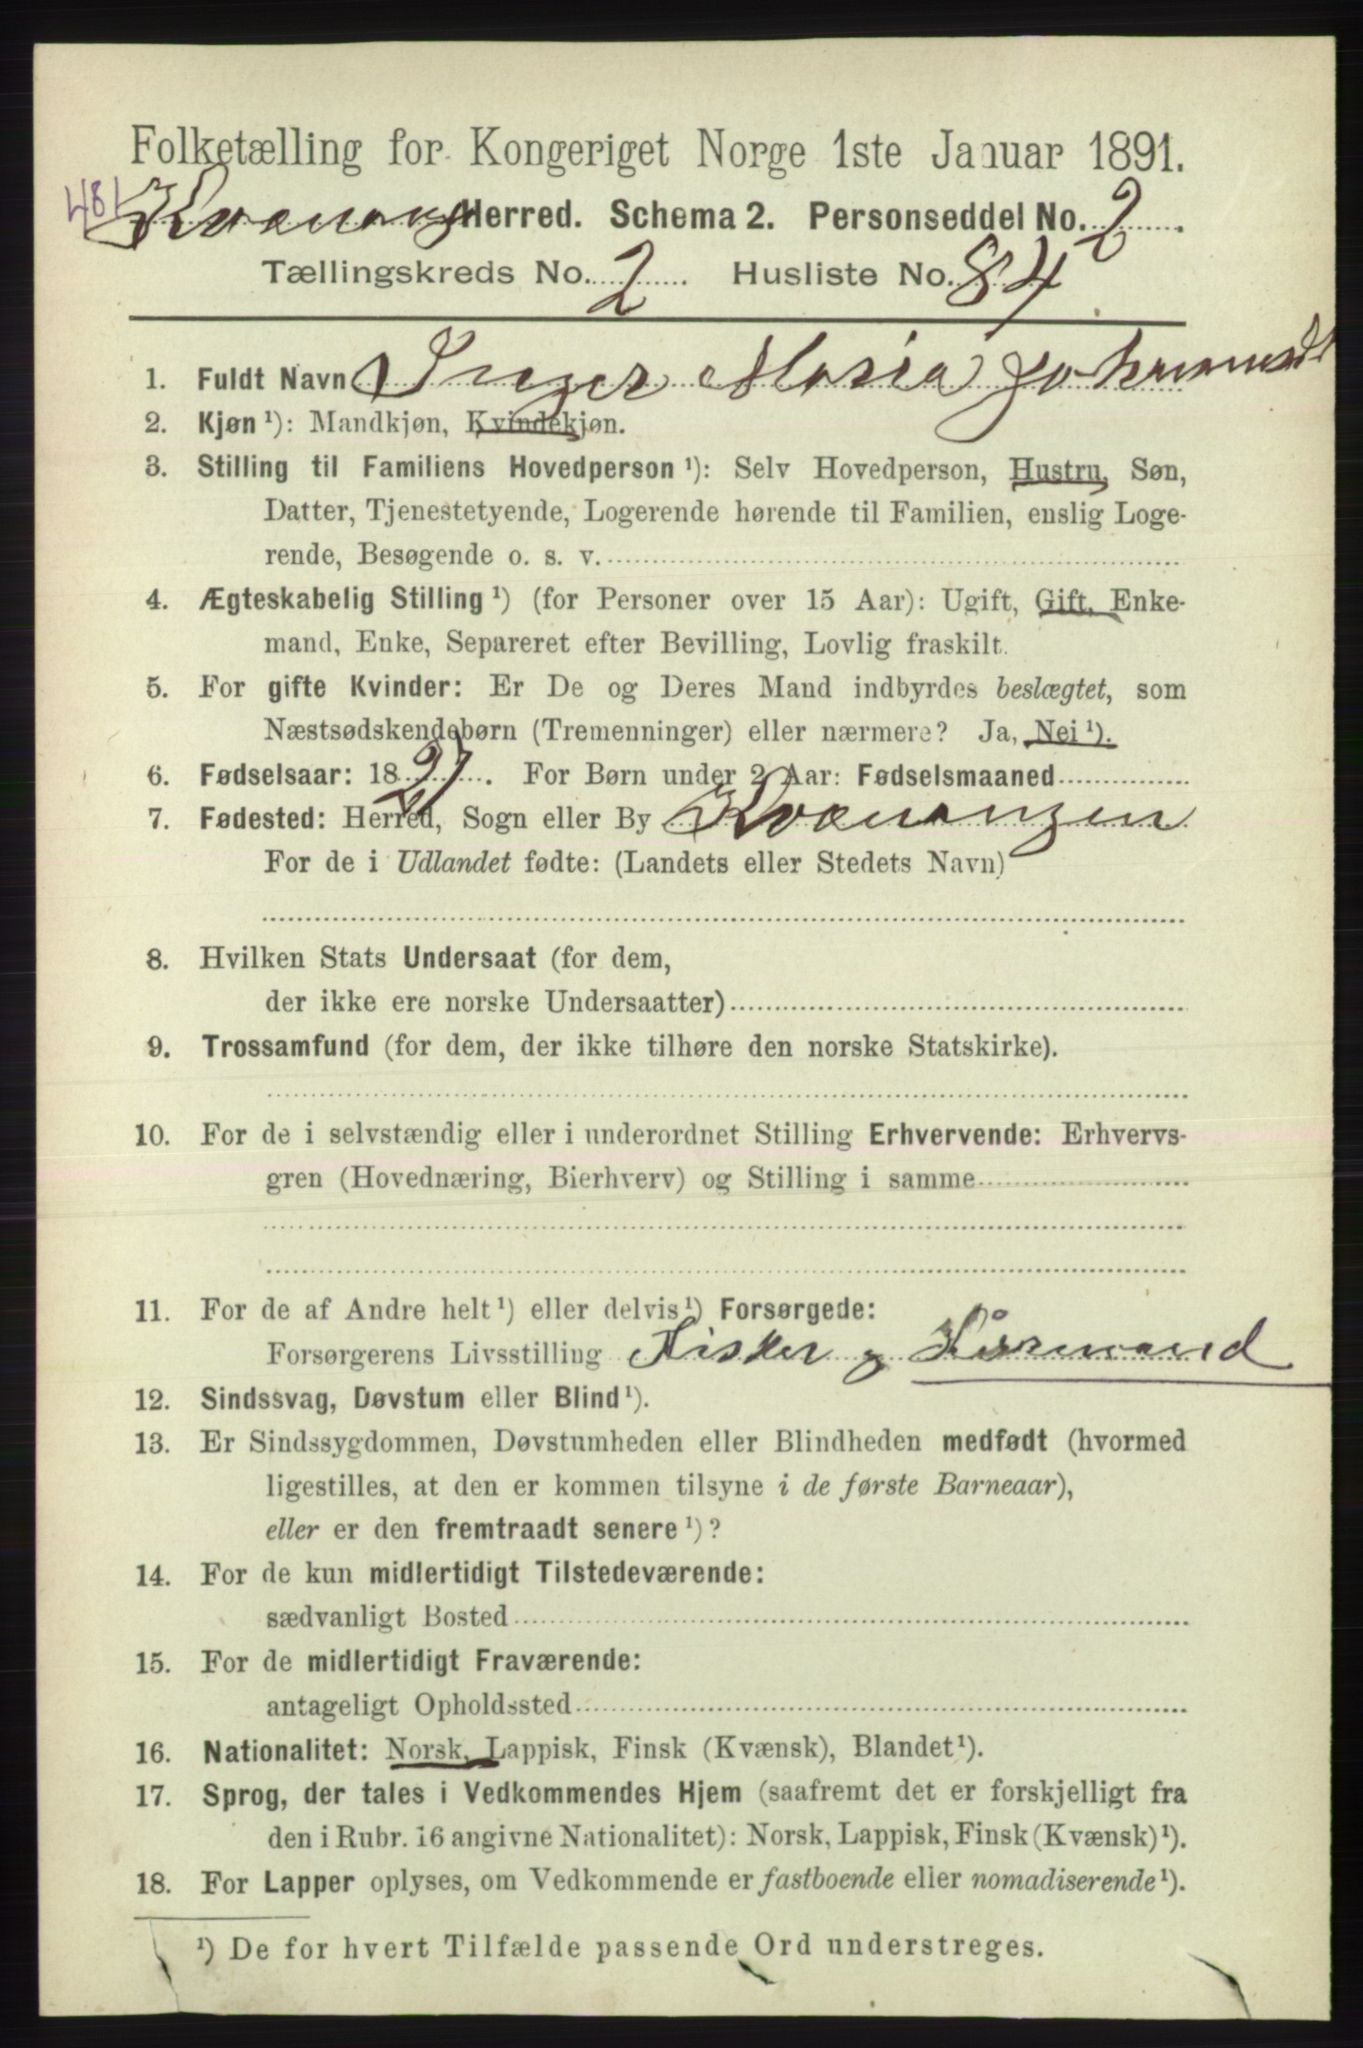 Folketælling for Kongeriget Norge 1ste Januar 1891.
481
Kvænang Herred. Schema 2. Personseddel No. 2.
Tællingskreds No. 2. Husliste No. 84.
1. Fuldt Navn Inger Maria Johannesdt
2. Kjøn ¹): Mandkjøn, Kvindekjøn.
3. Stilling til Familiens Hovedperson ¹): Selv Hovedperson, Hustru, Søn,
Datter, Tjenestetyende, Logerende hørende til Familien, enslig Loge-
rende, Besøgende o. s. v.
4. Ægteskabelig Stilling ¹) (for Personer over 15 Aar): Ugift, Gift, Enke-
mand, Enke, Separeret efter Bevilling, Lovlig fraskilt.
5. For gifte Kvinder: Er De og Deres Mand indbyrdes beslægtet, som
Næstsødskendebørn (Tremenninger) eller nærmere? Ja, Nei ¹).
6. Fødselsaar: 18. For Børn under 2 Aar: Fødselsmaaned
7. Fødested: Herred, Sogn eller By Kvænangen
For de i Udlandet fødte: (Landets eller Stedets Navn)
8. Hvilken Stats Undersaat (for dem,
der ikke ere norske Undersaatter)
9. Trossamfund (for dem, der ikke tilhøre den norske Statskirke).
10. For de i selvstændig eller i underordnet Stilling Erhvervende: Erhvervs-
gren (Hovednæring, Bierhverv) og Stilling i samme
11. For de af Andre helt ¹) eller delvis ¹) Forsørgede:
Forsørgerens Livsstilling Fisker g
12. Sindssvag, Døvstum eller Blind ¹).
13. Er Sindssygdommen, Døvstumheden eller Blindheden medfødt (hvormed
ligestilles, at den er kommen tilsyne i de første Barneaar),
eller er den fremtraadt senere ¹)?
14. For de kun midlertidigt Tilstedeværende:
sædvanligt Bosted
15. For de midlertidigt Fraværende:
antageligt Opholdssted
16. Nationalitet: Norsk, Lappisk, Finsk (Kvænsk), Blandet ¹).
17. Sprog, der tales i Vedkommendes Hjem (saafremt det er forskjelligt fra
den i Rubr. 16 angivne Nationalitet): Norsk, Lappisk, Finsk (Kvænsk) ¹).
18. For Lapper oplyses, om Vedkommende er fastboende eller nomadiserende ¹).
¹) De for hvert Tilfælde passende Ord understreges.